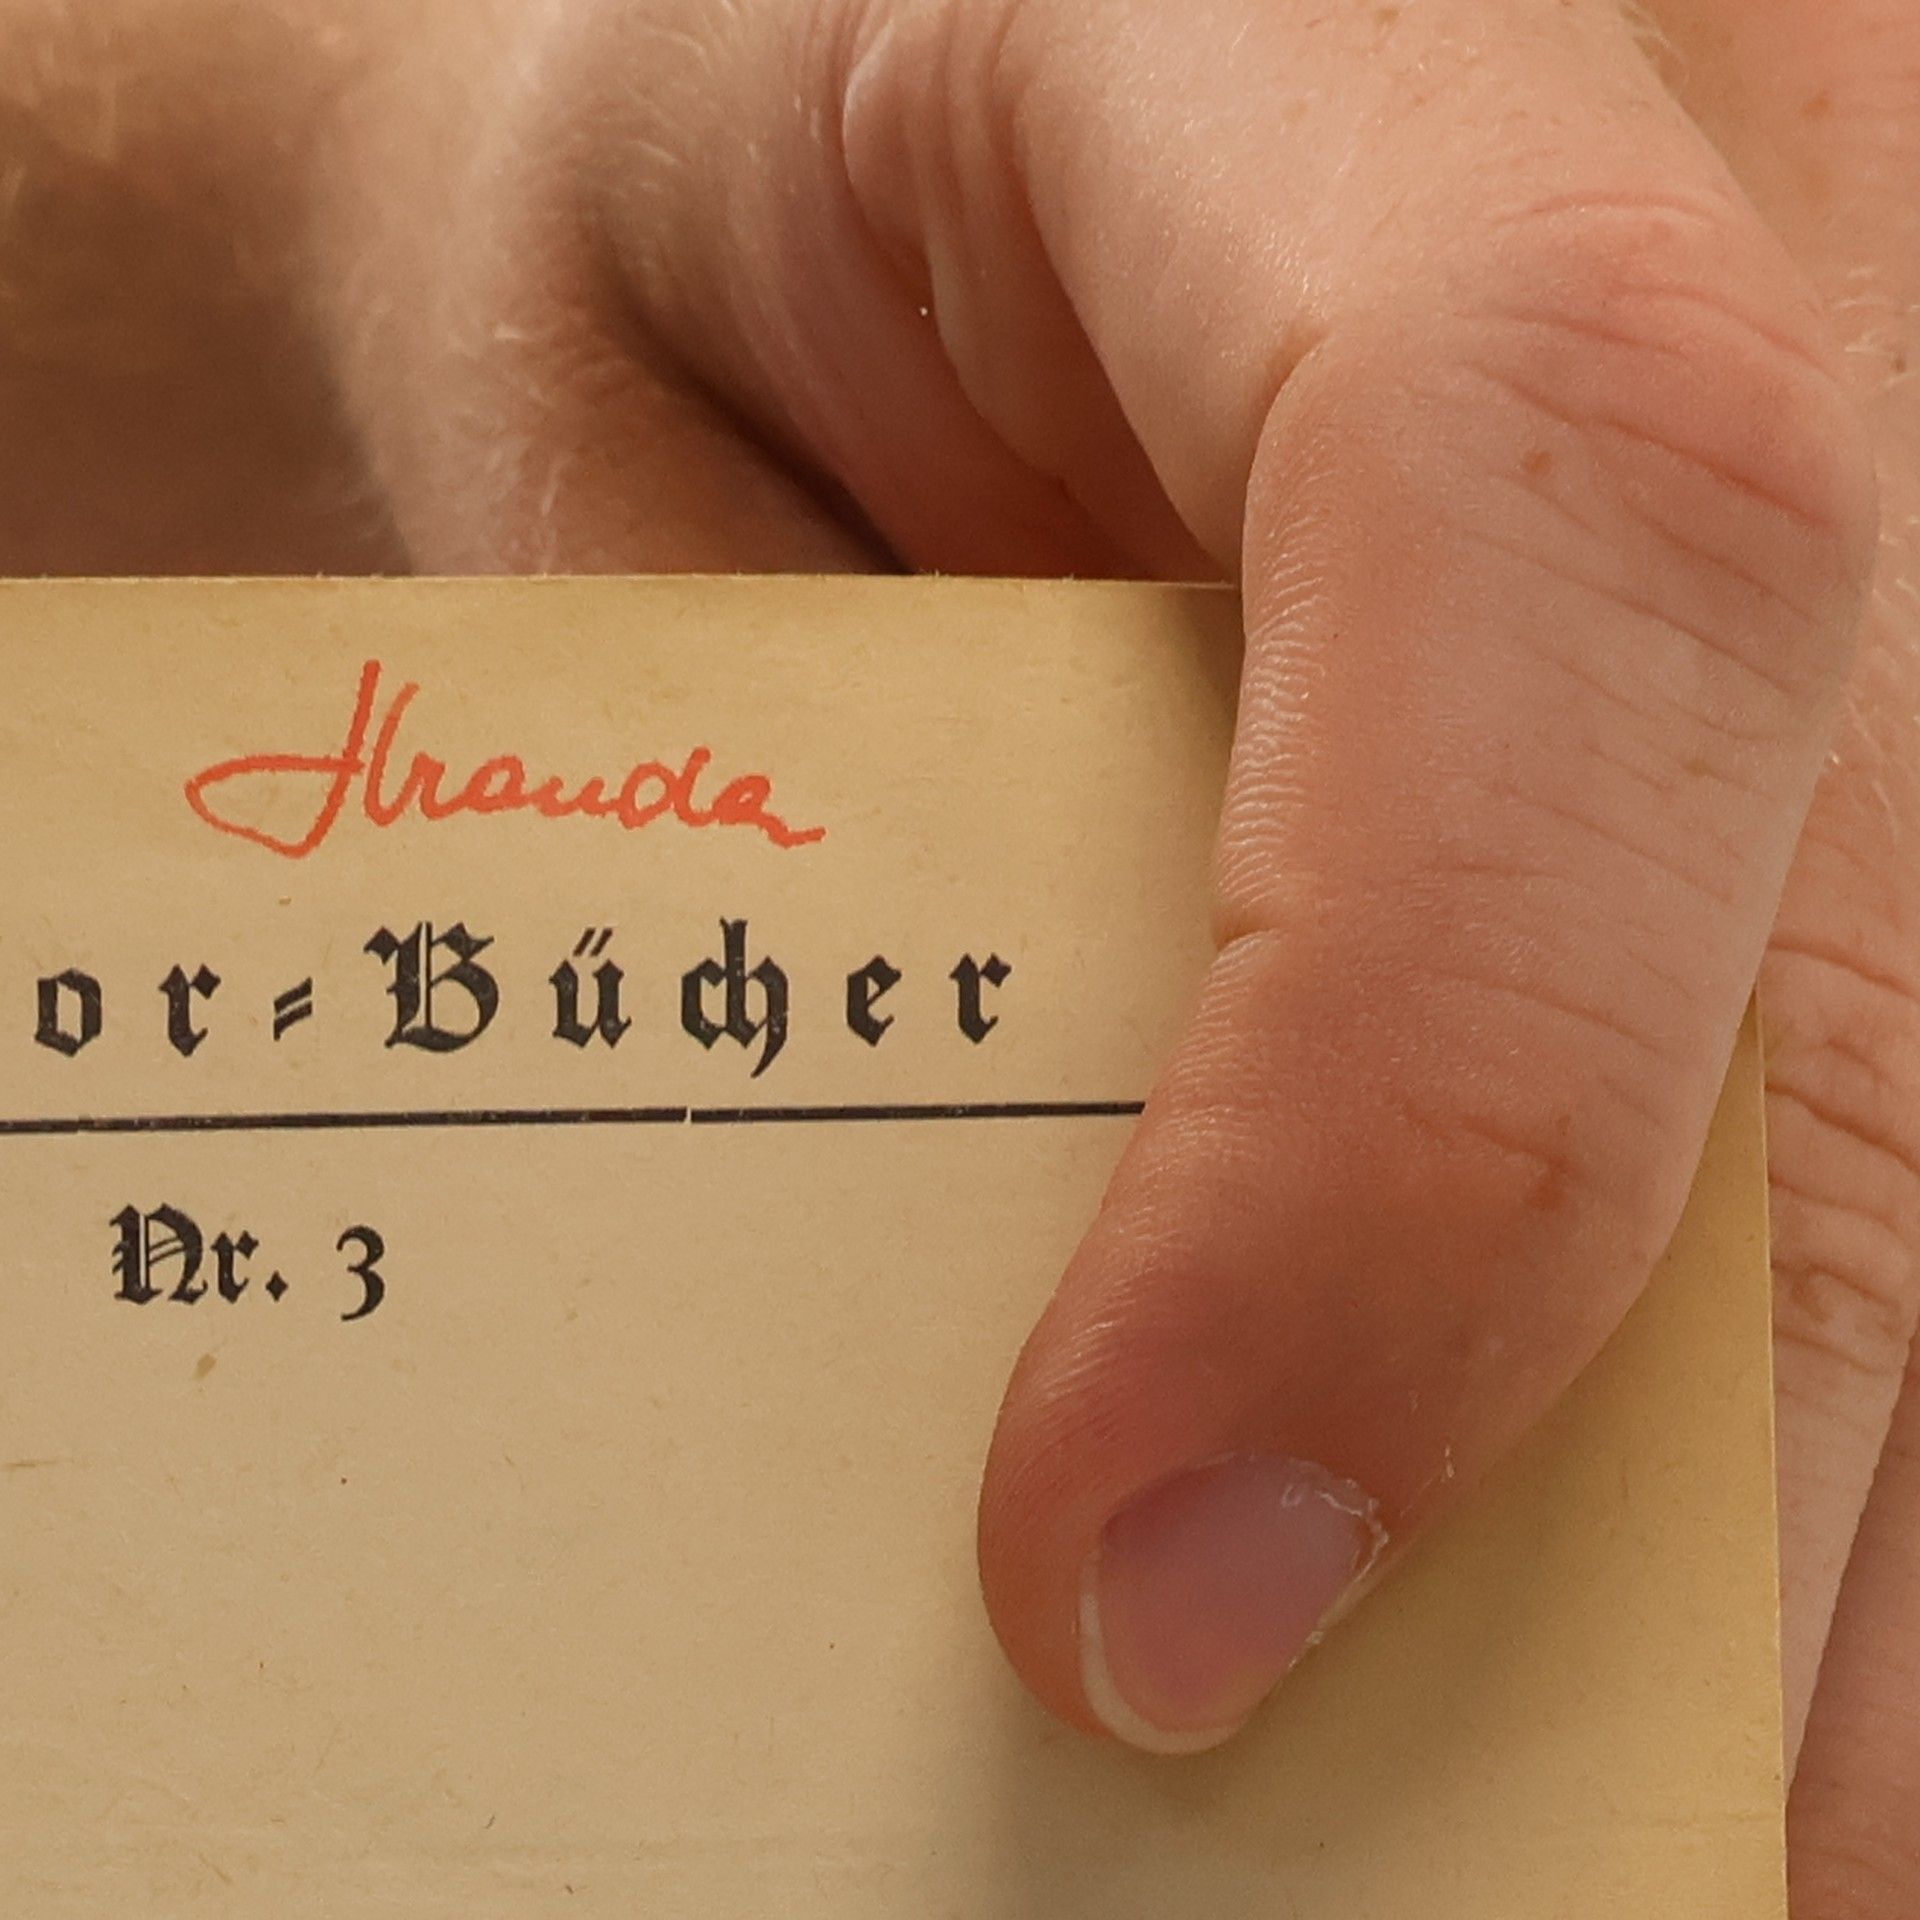 Hranda
or-Bücher
Nr. 3